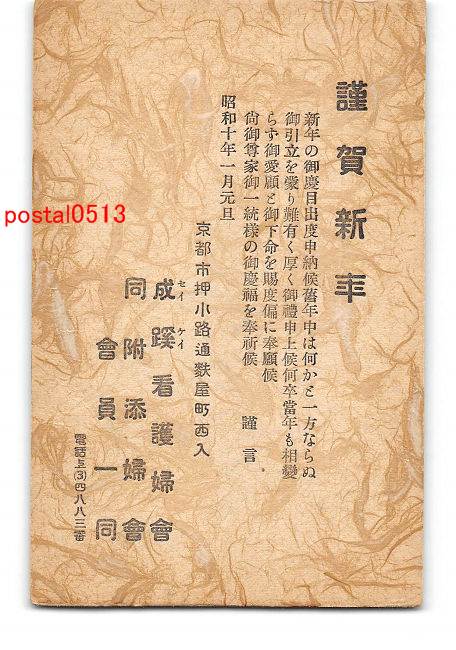 謹賀新年
新年の御慶目出度申納候舊年中は何かと一方ならぬ
御引立を蒙り難有く厚く御禮申上候何卒當年も相變
らず御愛顧と御下命を賜度偏に奉願候
尚御尊家御一統様の御慶福を奉祈候 謹言
昭和十年一月元旦
京都市押小路通麩屋町西入
成蹊看護婦會
セイケイ
同附添婦會
會員一同
電話上(3)四八八三番
postal0513